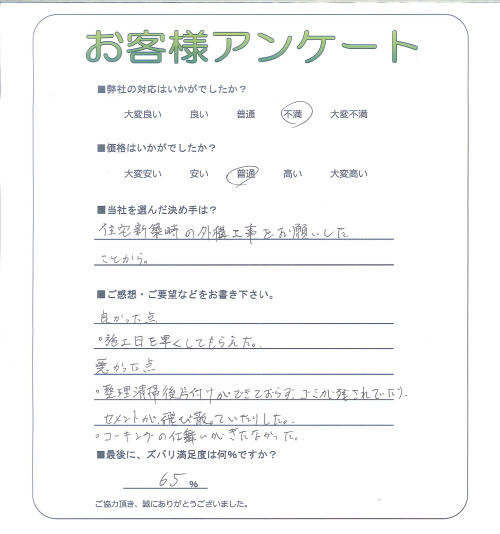 お客様アンケート
■弊社の対応はいかがでしたか？
大変良い 良い 普通 不満 大変不満
■価格はいかがでしたか？
大変安い 安い 普通 高い 大変高い
■当社を選んだ決め手は？
住宅新築時の外構工事をお願いした
ことから。
■ご感想・ご要望などをお書き下さい。
良かった点
・施工日を早くしてもらえた。
悪かった点
・整理清掃後片付けができておらず、ゴミが残されでたり、
セメントが飛び散っていたりした。
・コーキングの仕舞いがきたなかった。
■最後に、ズバリ満足度は何%ですか？
65 %
ご協力頂き、誠にありがとうございました。